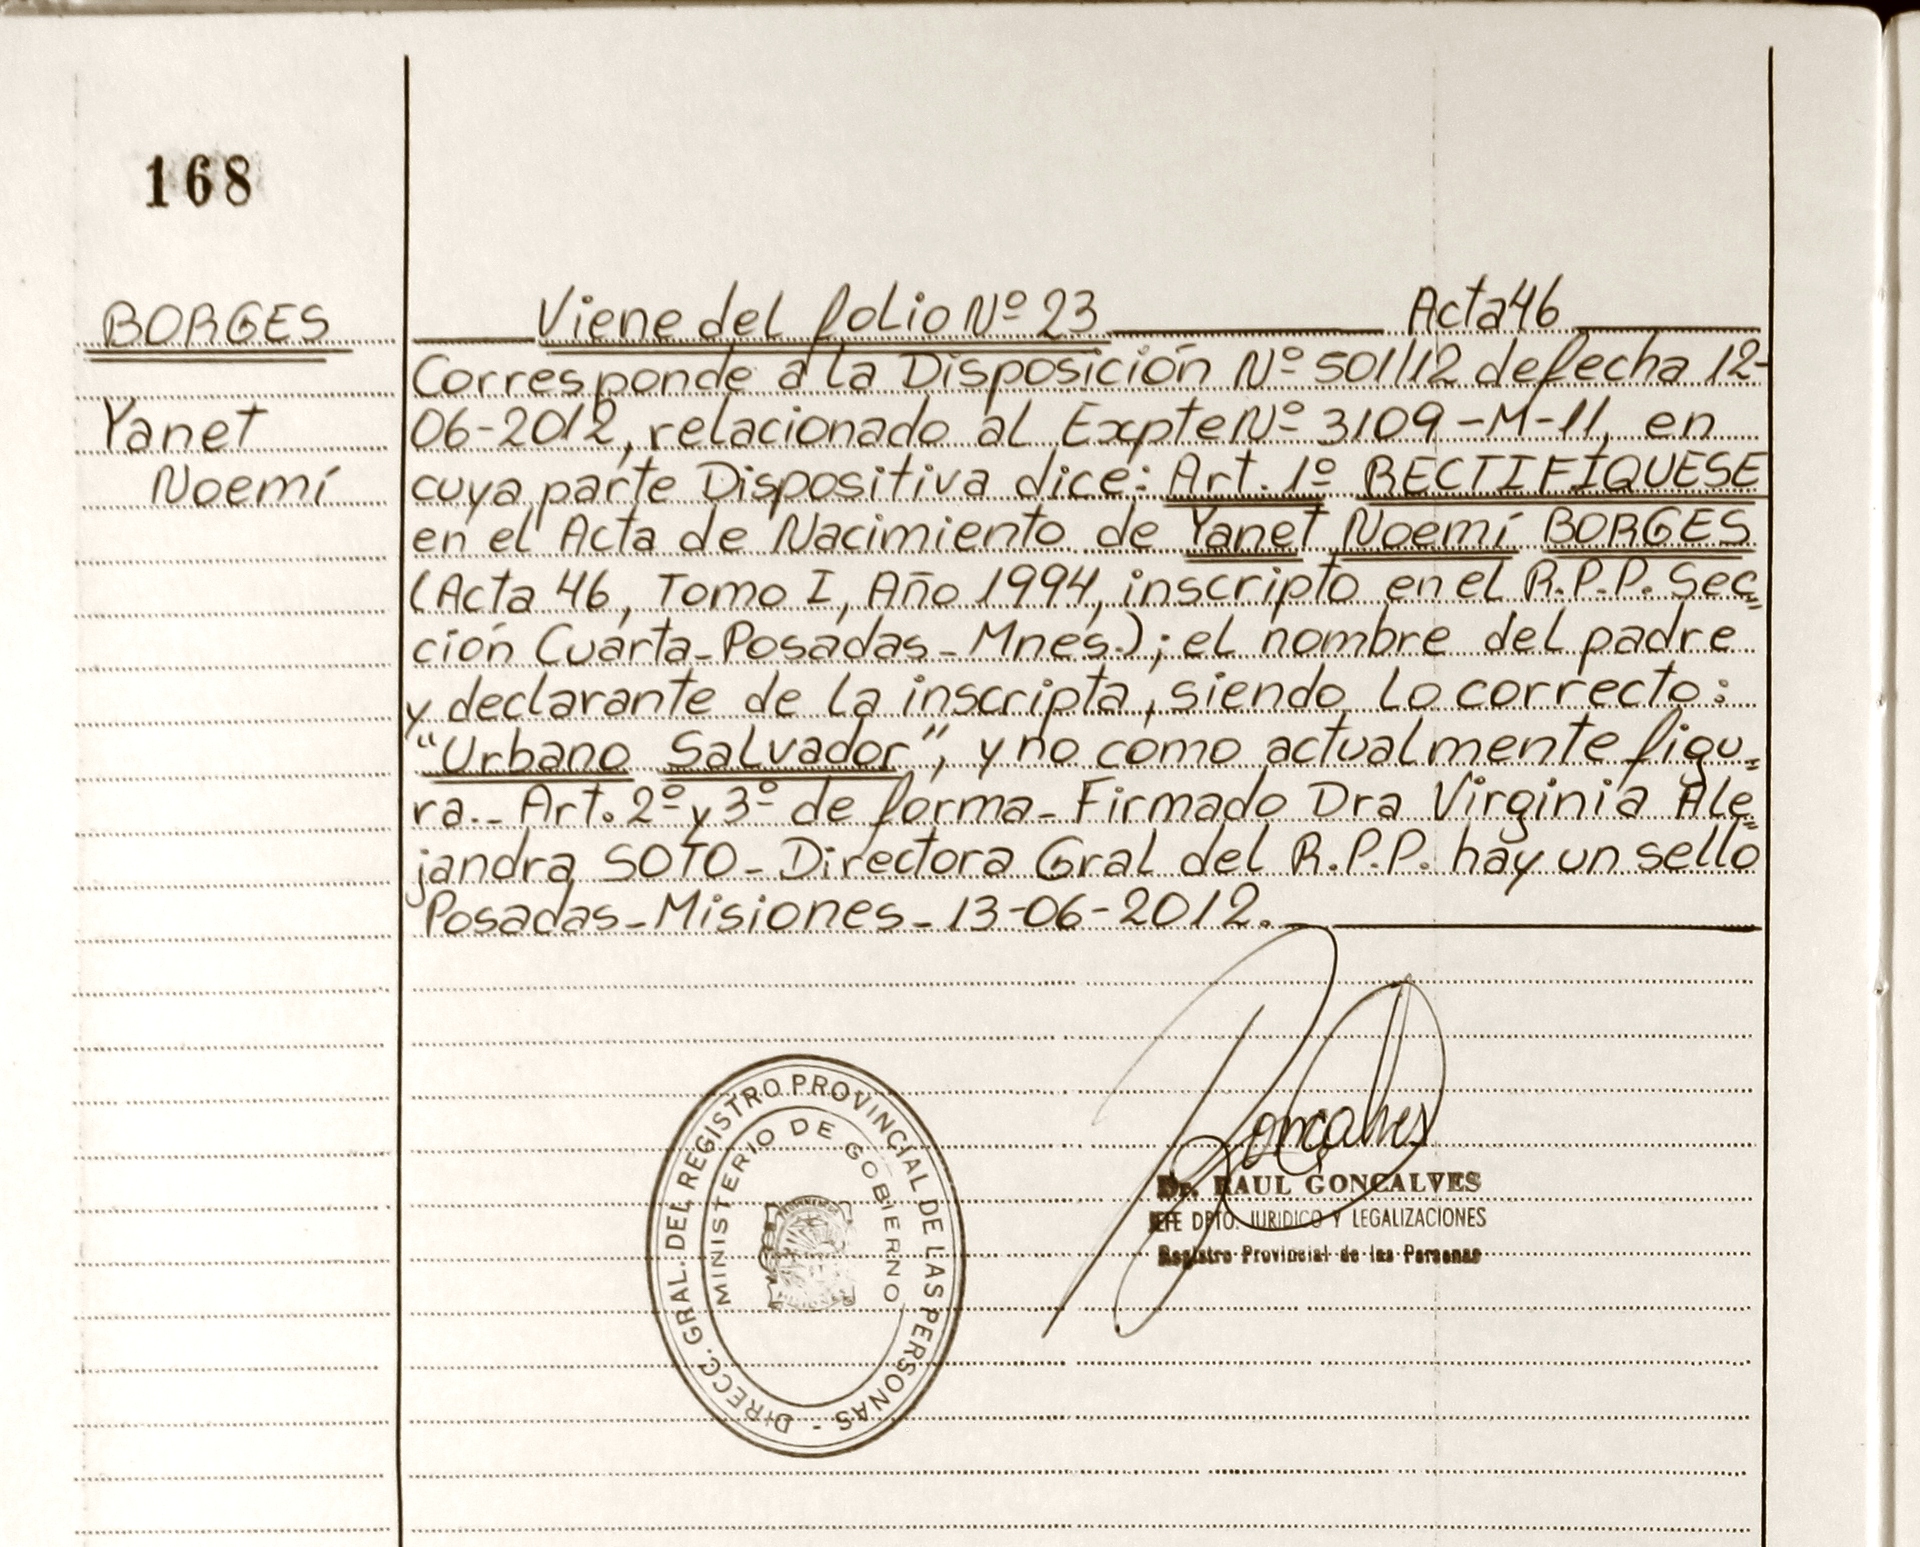 168
BORGES
Yanet
Noemí
Viene del folio Nº 23 Acta 46
Corresponde a la Disposición Nº 501/12 de fecha 12-
06-2012, relacionado al Expte Nº 3109-M-11, en
cuya parte Dispositiva dice: Art. 1º RECTIFÍQUESE
en el Acta de Nacimiento de Yanet Noemí BORGES
(Acta 46, Tomo I, Año 1994, inscripto en el R.P.P. Sec=
ción Cuarta-Posadas-Mnes.); el nombre del padre
y declarante de la inscripta, siendo lo correcto:
"Urbano Salvador", y no como actualmente figu=
ra.- Art. 2º y 3º de forma- Firmado Dra Virginia Ale=
jandra SOTO- Directora Gral del R.P.P. hay un sello
Posadas-Misiones-13-06-2012.-
DIRECC. GRAL. DEL REGISTRO PROVINCIAL DE LAS PERSONAS -
MINISTERIO DE GOBIERNO
Goncalves
Dr. RAUL GONCALVES
JEFE DPTO. JURIDICO Y LEGALIZACIONES
Registro Provincial de las Personas